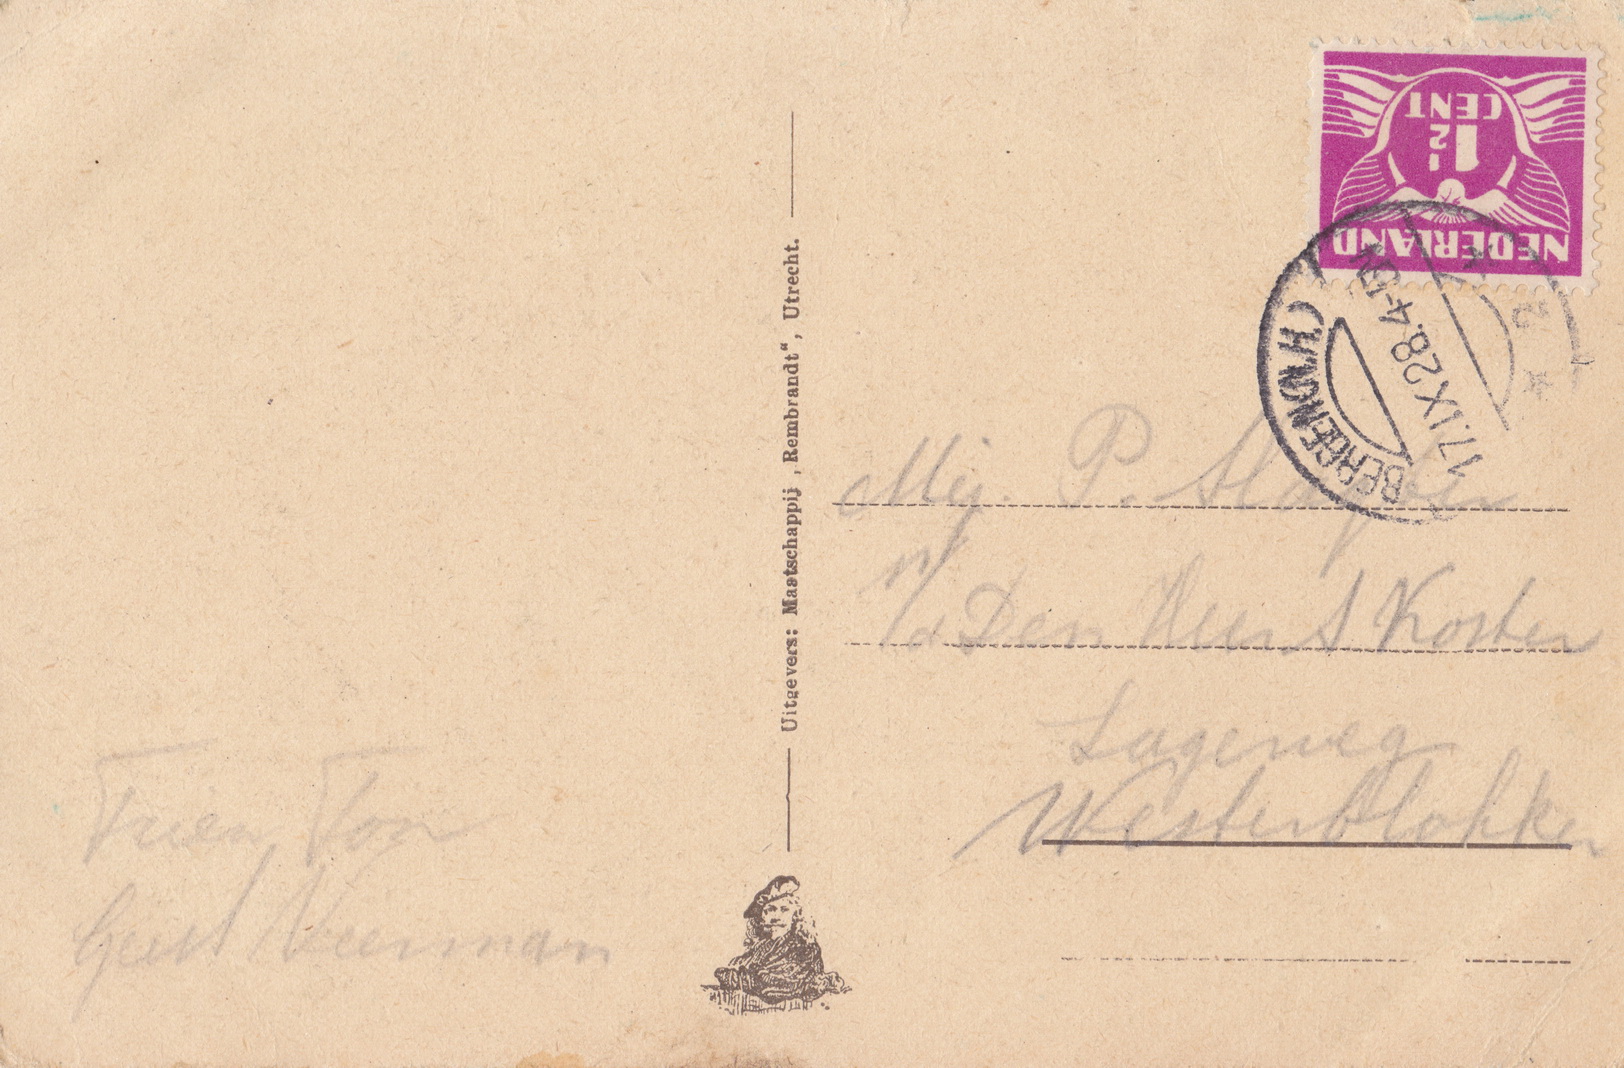 Uitgevers: Maatschappij „Rembrandt“, Utrecht.
NEDERLAND
1½
CENT
BERGEN (N.H.)
17.IX 28. 4-5N
Mej. P. Slagter
p/a Den Heer S Koster
Lageweg
Westerblokker
Trien, Ton
Geert Veerman